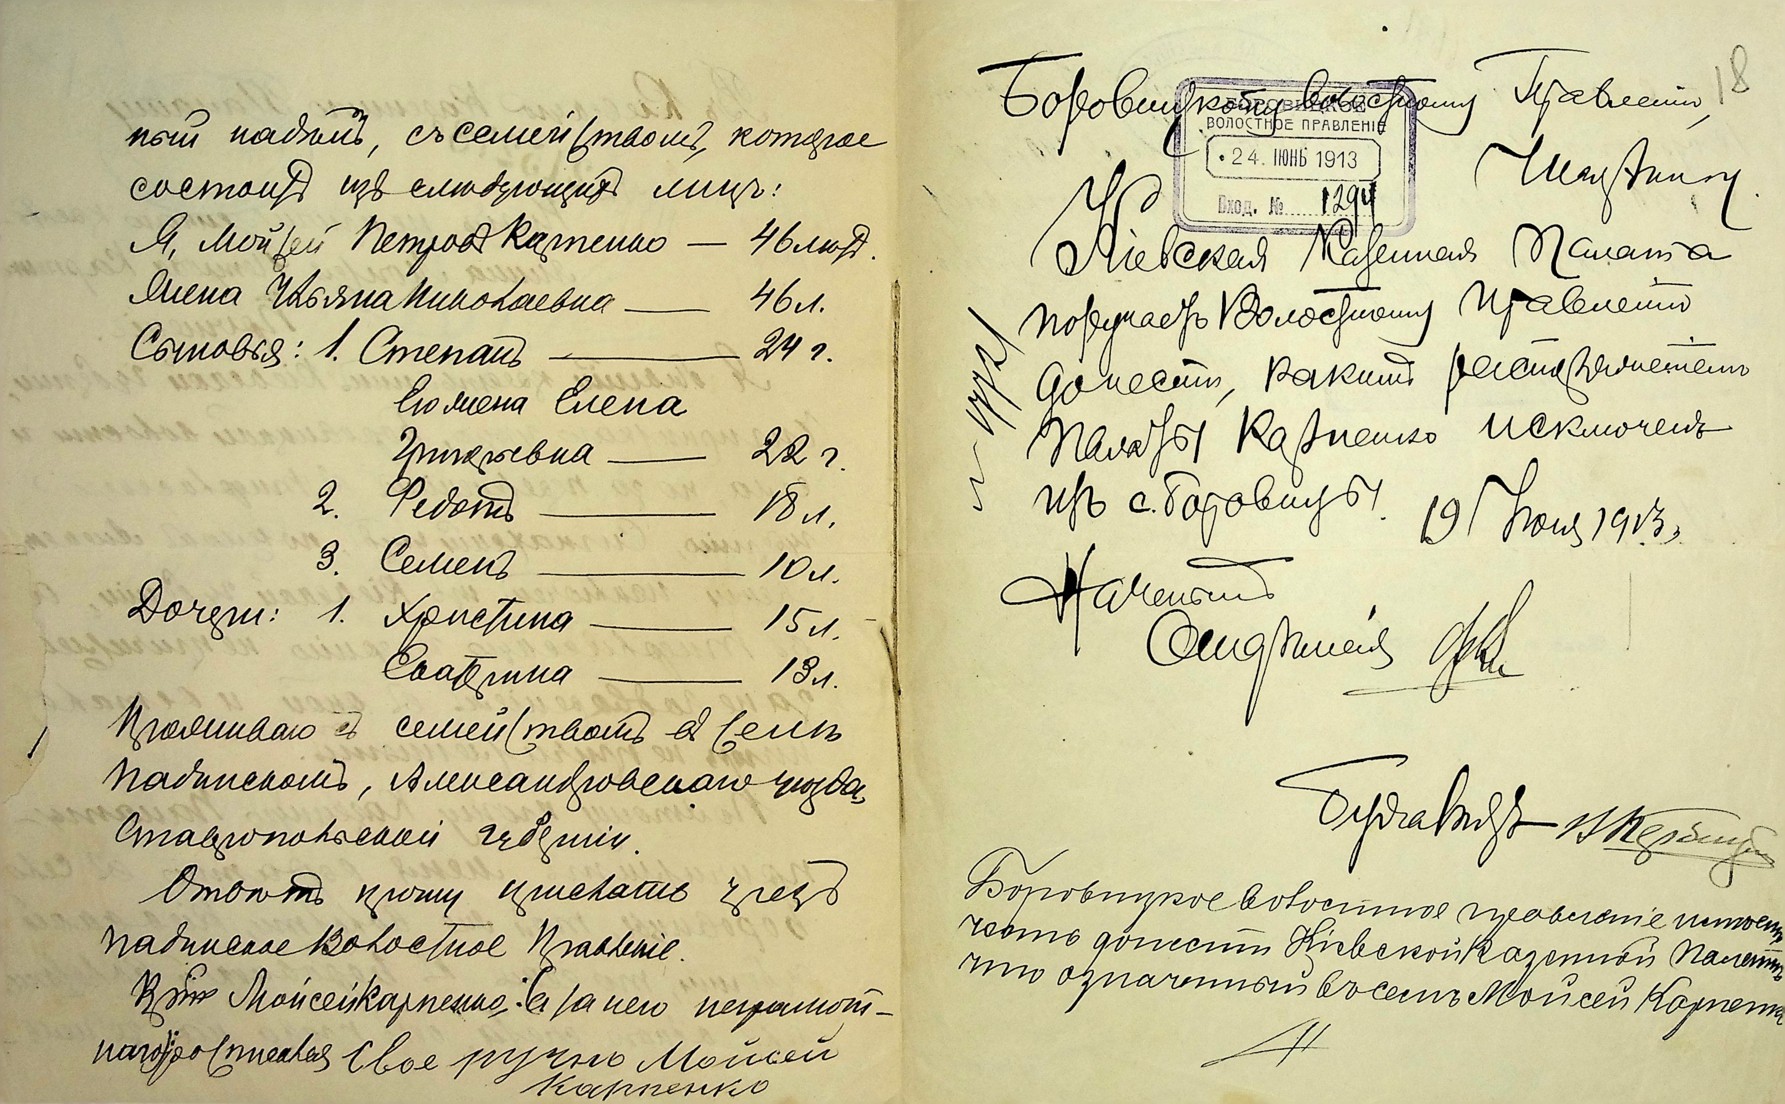 ный надѣлъ, съ семействомъ, которое
состоитъ изъ слѣдующихъ лицъ:
Я, Мойсей Петровъ Карпенко — 46 лѣтъ.
Жена Ульяна Николаевна — 46 л.
Сыновья: 1. Степанъ — 24 г.
Его жена Елена
Григорьевна — 22 г.
2. Федотъ — 18 л.
3. Семенъ — 10 л.
Дочери: 1. Христина — 15 л.
Екатерина — 13 л.
Проживаю съ семействомъ въ селѣ
Падинскомъ, Александровскаго уѣзда,
Ставропольской губерніи.
Отвѣтъ прошу прислать чрезъ
Падинское Волостное Правленіе.
Мойсей Карпенко, а за него неграмот-
наго росписался Свое ручно Мойсей
Карпенко
18
Боровицкому Волостному Правленію,
БОРОВИЦКОЕ
ВОЛОСТНОЕ ПРАВЛЕНІЕ
24. ІЮНЬ 1913
Вход. № 1294
Кіевская Казенная Палата
поручаетъ Волостному Правленію
донести, какимъ распоряженіемъ
Палаты Карпенко исключенъ
изъ с. Боровицы. 19 Іюня 1913,
Начальникъ
Отдѣленія
Бухгалтеръ
Боровицкое волостное правленіе имѣетъ
честь донести Кіевской Казенной Палатѣ
что означенный въ семъ Мойсей Карпенко